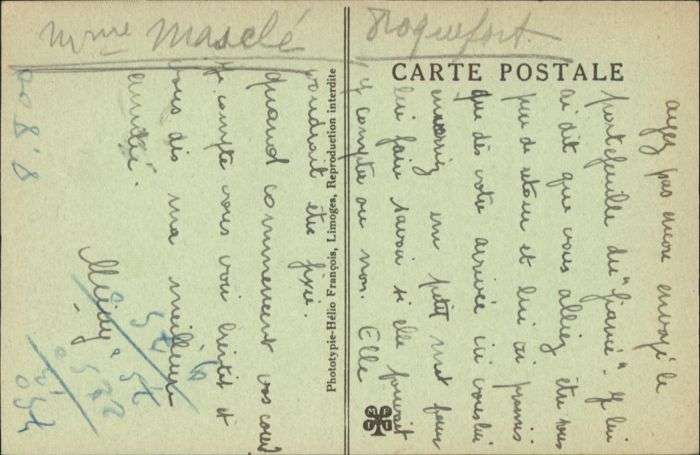 Mme Masclé
Roquefort.
CARTE POSTALE
Phototypie-Hélio François, Limoges, Reproduction interdite
ayez pas encore envoyé le
portefeuille du "fiancé". Je lui
ai dit que vous alliez être sous
peu de retour et lui ai promis
que dès votre arrivée ici vous lui
enverriez un petit mot pour
lui faire savoir si elle pouvait
y compter ou non. Elle
voudrait être fixée.
quand commencent vos cours
Je compte vous voir bientôt et
vous dis ma meilleure
amitié.